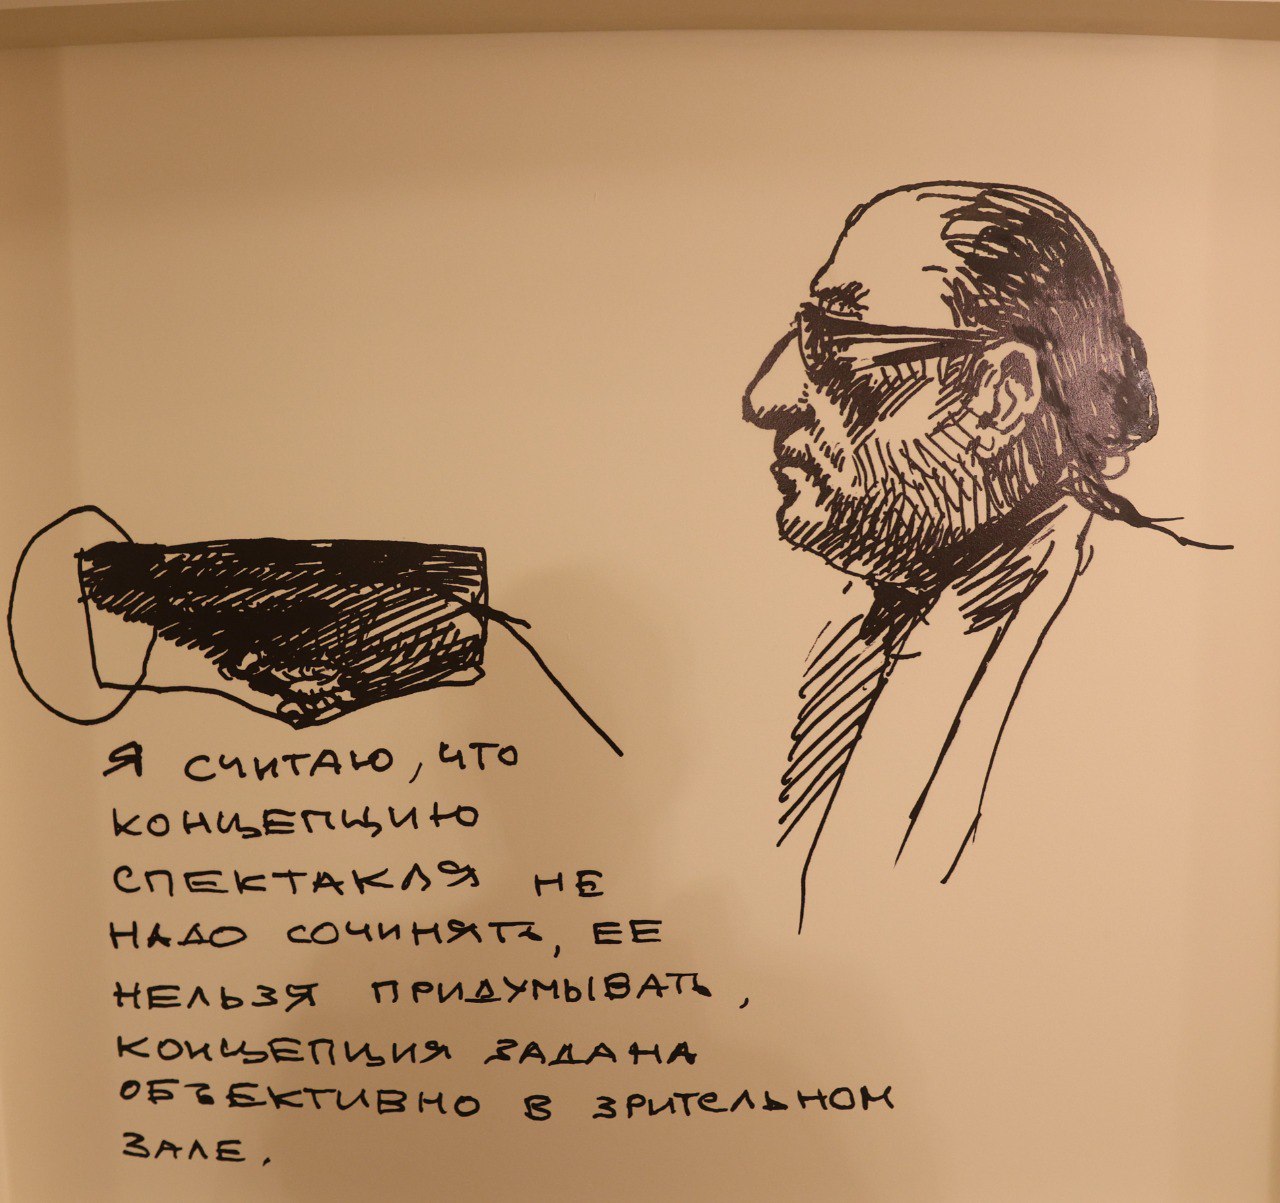 Я СЧИТАЮ, ЧТО
КОНЦЕПЦИЮ
СПЕКТАКЛЯ НЕ
НАДО СОЧИНЯТЬ, ЕЕ
НЕЛЬЗЯ ПРИДУМЫВАТЬ,
КОНЦЕПЦИЯ ЗАДАНА
ОБЪЕКТИВНО В ЗРИТЕЛЬНОМ
ЗАЛЕ.